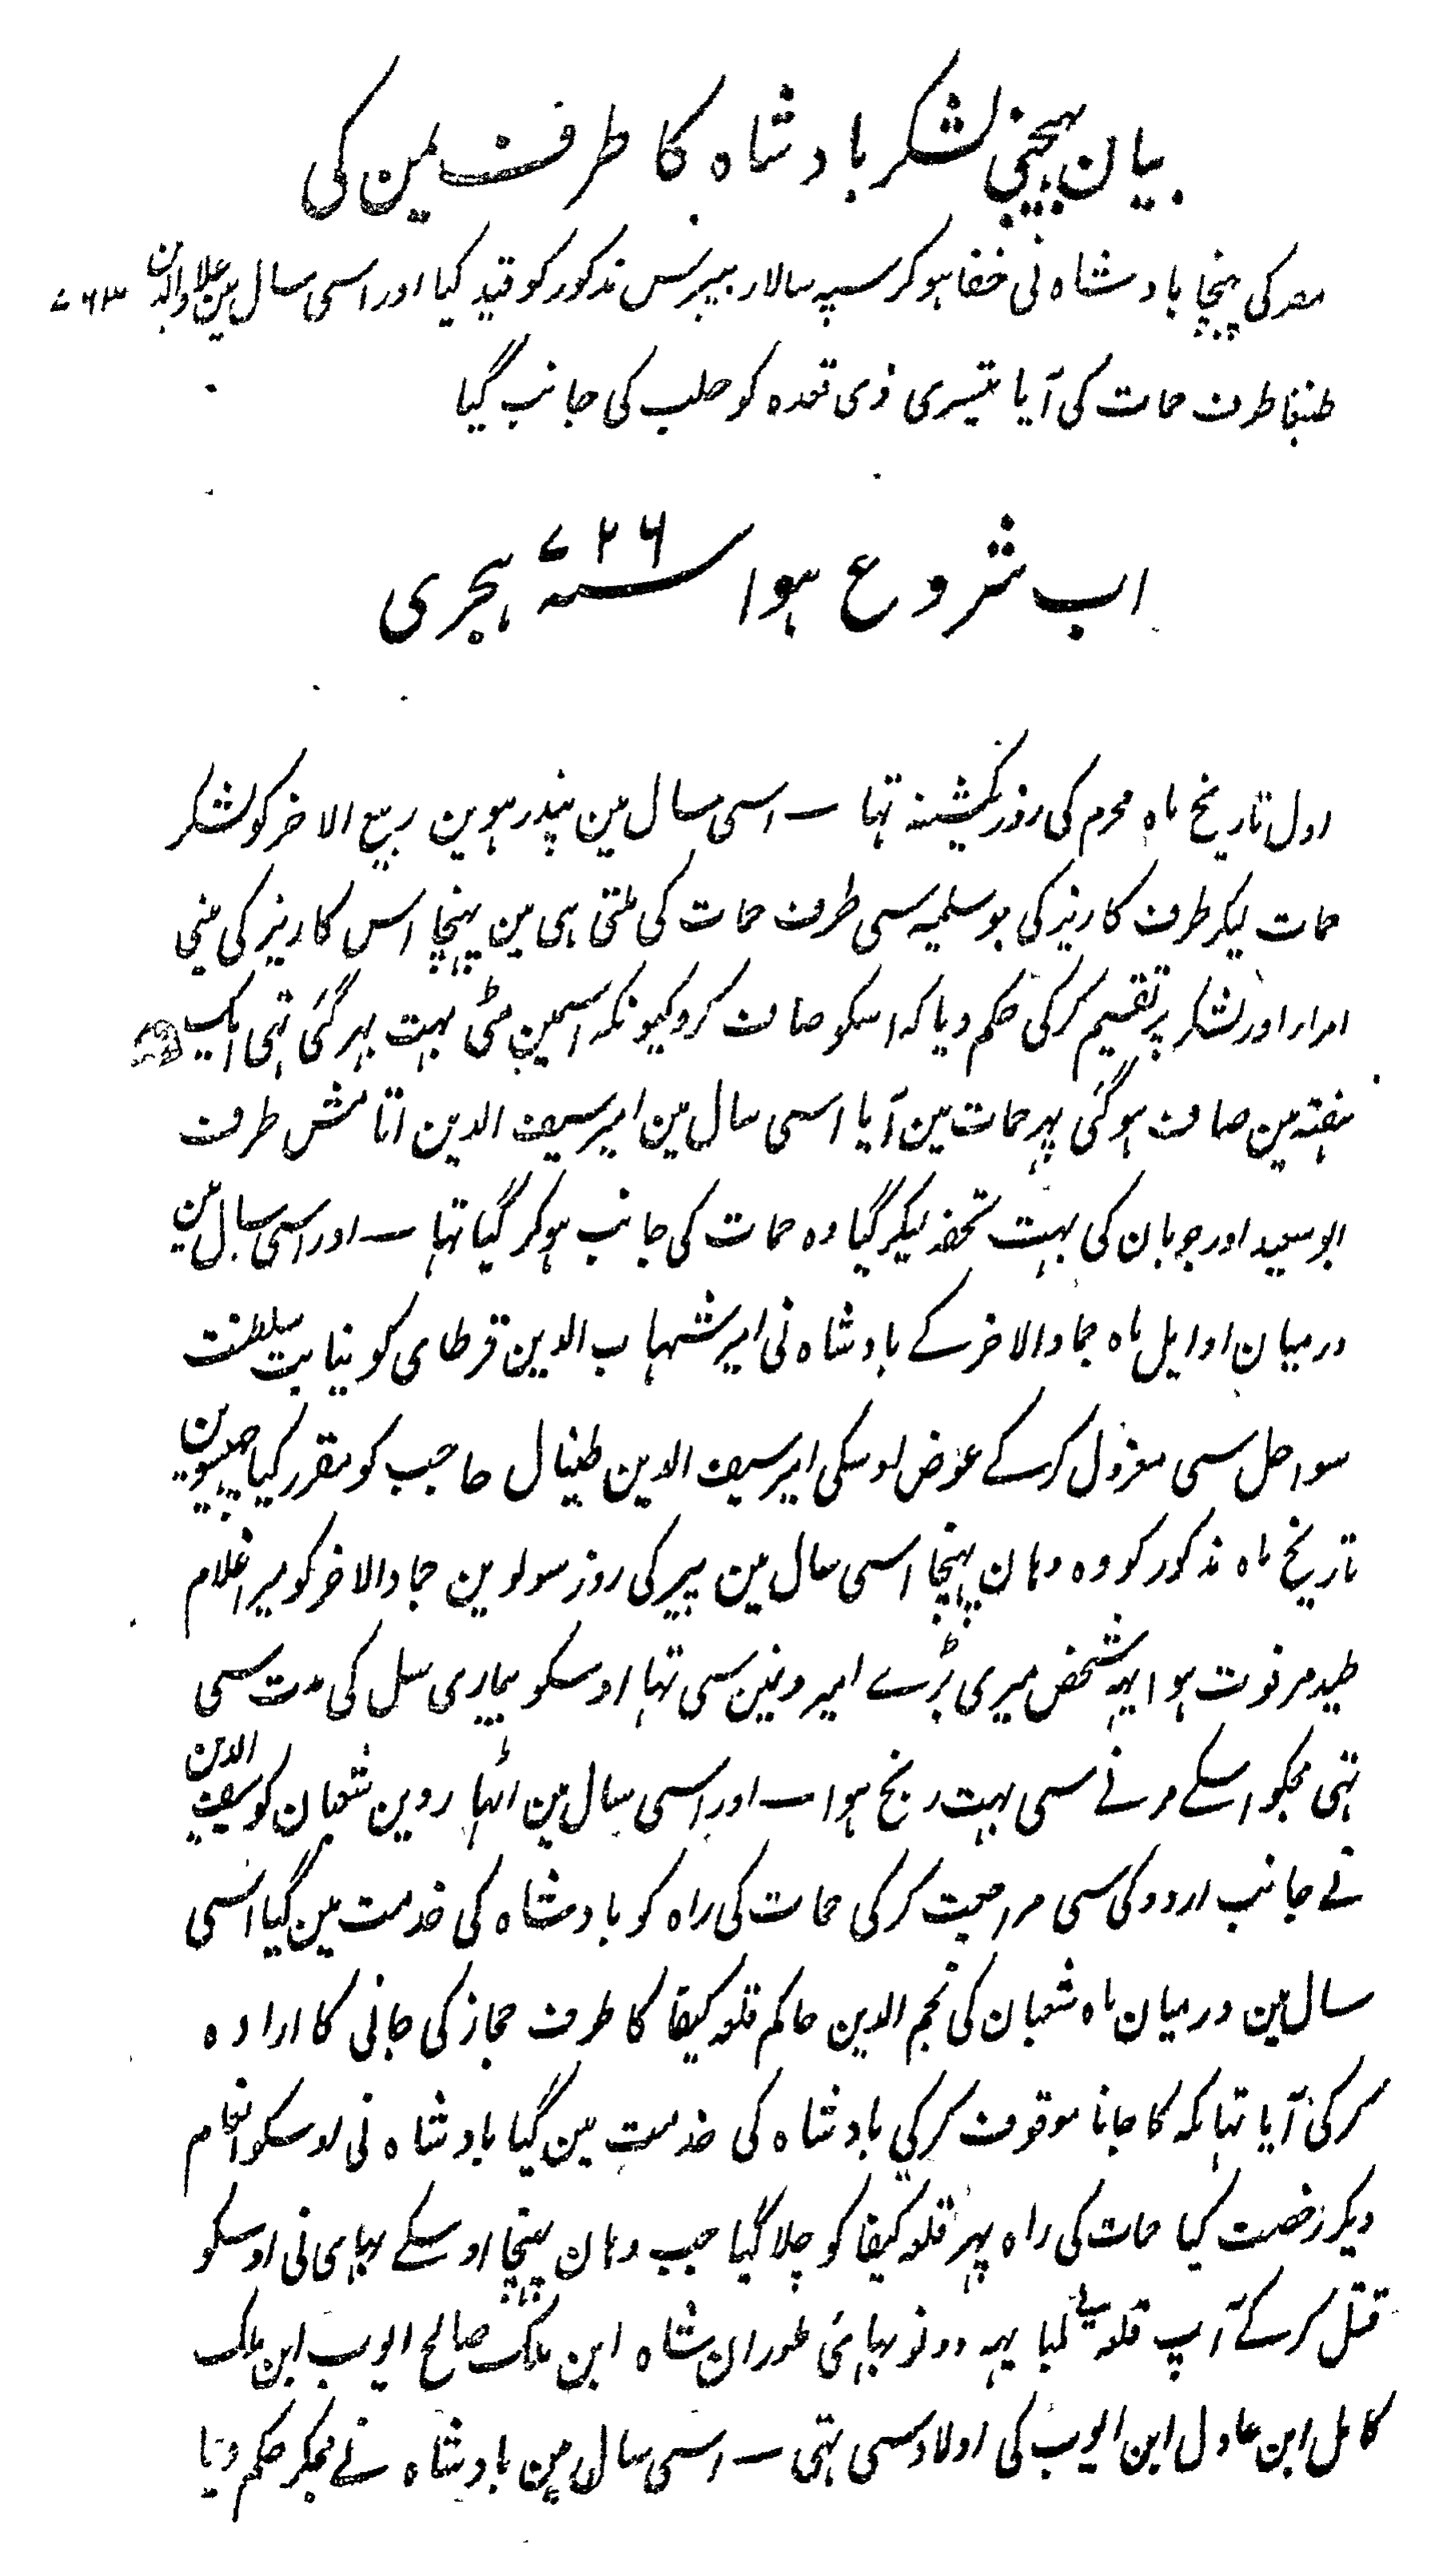 بیان بہیجنی لشکر بادشاہ کا طرف یمن کی
مصر کی پہنچا بادشاہ نی خفا ہوکر سپہ سالار بیبرس مذکور کو قید کیا اور اسی سال مین علاوالدین ۷۶۳
طنبغا طرف حمات کی آیا تیسری ذی قعدہ کو حلب کی جانب گیا
اب شروع ہوا سنہ ۷۲۶ ہجری
اول تاریخ ماہ محرم کی روز یکشنبہ تہا ۔ اسی سال مین پندرہوین ربیع الاخر کو لشکر
حمات لیکر طرف کاریز کی جو سلمیہ سی طرف حمات کی ملتی ہی مین پہنچا اس کاریز کی مینی
امرار اور لشکر پر تقسیم کرکی حکم دیا کہ اسکو صاف کرو کیونکہ اسمین مٹی بہت بہر گئی تہی ایک
ہفتہ مین صاف ہوگئی پہر حمات مین آیا اسی سال مین امیر سیف الدین اتامش طرف
ابو سعید اور جوبان کی بہت تحفہ لیکر گیا وہ حمات کی جانب ہوکر گیا تہا ۔ اور اسی سال مین
درمیان اوایل ماہ جمادالاخر کے بادشاہ نی امیر شہاب الدین قرطای کو نیابت سلطنت
سواحل سی معزول کرکے عوض اوسکی امیر سیف الدین طینال حاجب کو مقرر کیا چہبیسوین
تاریخ ماہ مذکور کو وہ وہان پہنچا اسی سال مین پیر کی روز سولوین جمادالاخر کو میرا غلام
طیدمر فوت ہوا یہہ شخص میری بڑے امیرونین سی تہا اوسکو بیماری سل کی مدت سی
تہی مجکو اسکے مرنے سی بہت رنج ہوا ۔ اور اسی سال مین اٹہاروین شعبان کو سیف الدین
نے جانب اردو کی سی مراجعت کرکی حمات کی راہ کو بادشاہ کی خدمت مین گیا اسی
سال مین درمیان ماہ شعبان کی نجم الدین حاکم قلعہ کیفا کا طرف حجاز کی جانی کا ارادہ
کرکی آیا تہا مکہ کا جانا موقوف کرکی بادشاہ کی خدمت مین گیا بادشاہ نی اوسکو انعام
دیکر رخصت کیا حمات کی راہ پہر قلعہ کیفا کو چلا گیا جب وہان پہنچا اوسکے بہاہی نی اوسکو
قتل کرکے آپ قلعہ لے لیا یہہ دونو بہاہی طوران شاہ ابن ملک صالح ایوب ابن ملک
کامل ابن عادل ابن ایوب کی اولاد سی تہی ۔ اسی سال مین بادشاہ نے مجکو حکم دیا